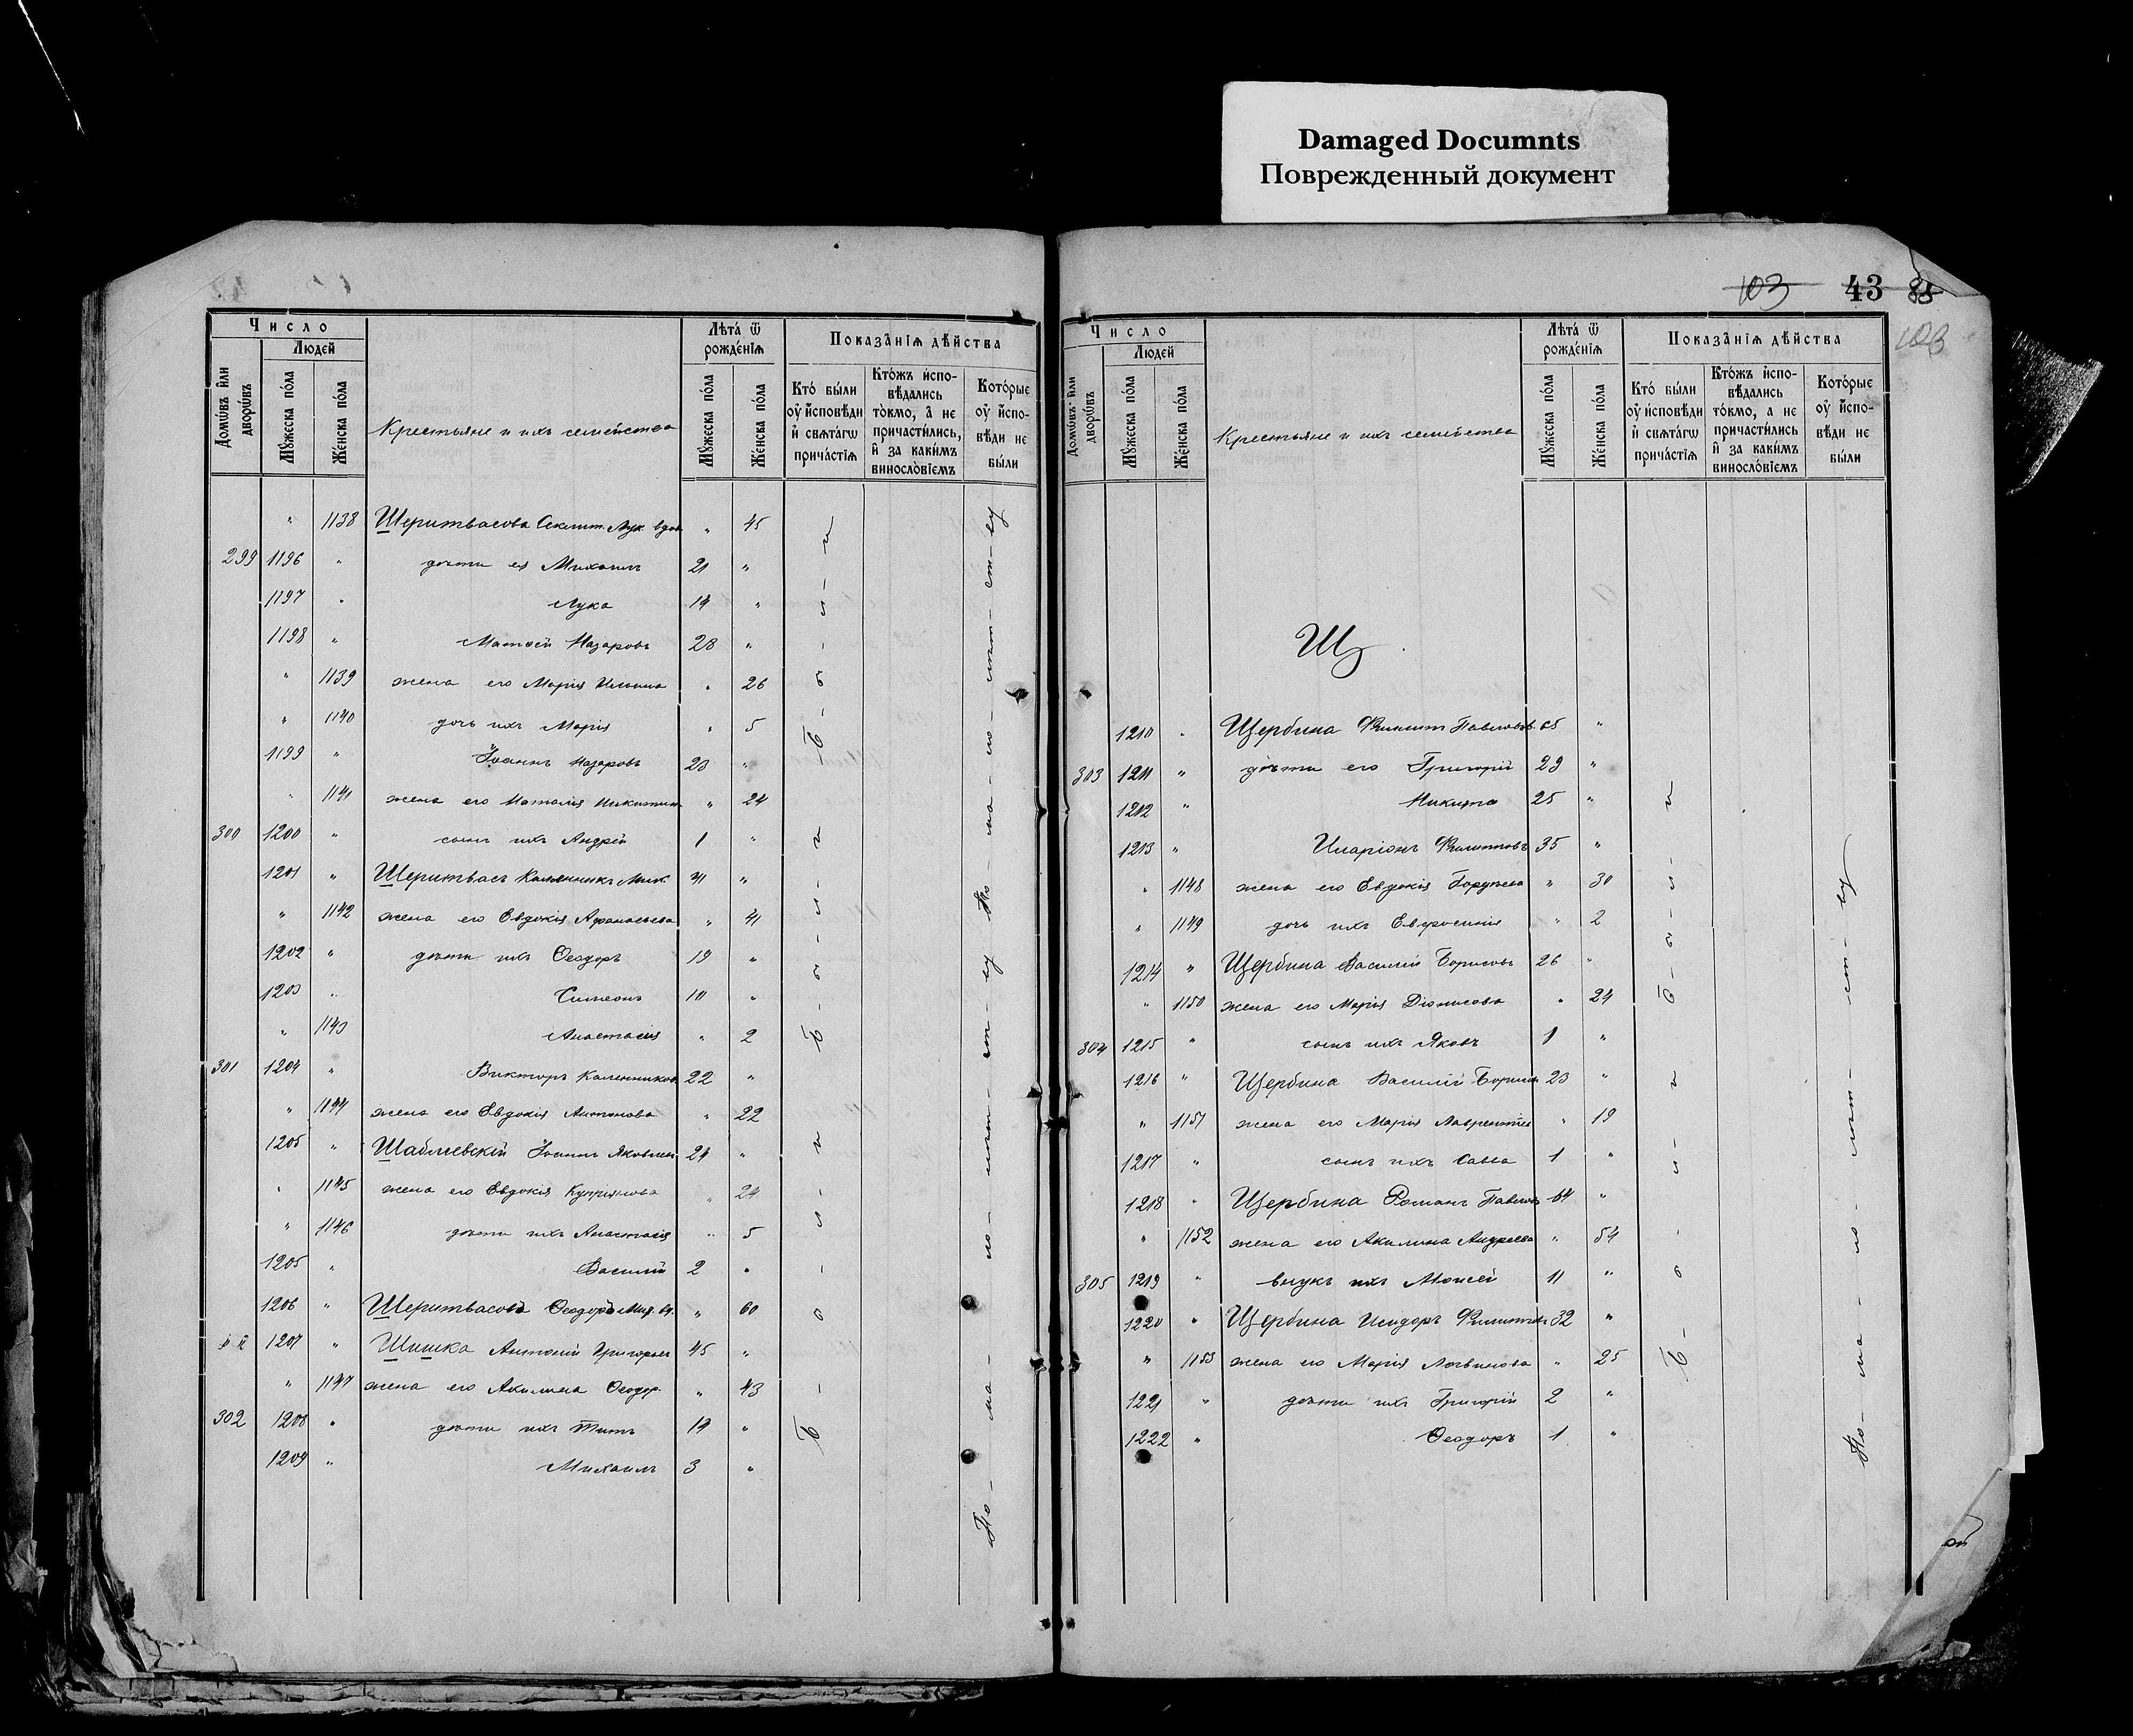 Damaged Documnts
Поврежденный документ
103 43 85
103
Число
Людей
Домѡвъ или дворѡвъ
Мꙋжеска пола
Женска пола
Крестьяне и ихъ семейства
Лѣта ѿ рожденїѧ
Мꙋжеска пола
Женска пола
Показанїѧ дѣйства
Кто были оу исповѣди и свѧтагѡ причастїѧ
Ктожъ исповѣдались токмо, а не причастились, и за какимъ винословїемъ
Которые оу исповѣди не были
" 1138 Шеритвасова Лук. вдов. " 45
299 1196 " дѣти ея Михаилъ 21 "
1197 " Лука 14 "
1198 " Матѳей Назаровъ 28 "
" 1139 жена его Марія Ильина " 26
" 1140 дочь ихъ Марія " 5
1199 " Іоаннъ Назаровъ 23 "
" 1141 жена его Наталія Никитин. " 24
300 1200 " сынъ ихъ Андрей 1 "
1201 " Шеритвасъ "
" 1142 жена его Евдокія Аѳанасьева " 41
1202 " дѣти ихъ Ѳеодоръ 19 "
1203 " Симеонъ 10 "
" 1143 Анастасія " 2
301 1204 " Викторъ Каленников. 22 "
" 1144 жена его Евдокія Антонова " 22
1205 " Шаблиевскій Іоаннъ Яковлев. 24 "
" 1145 жена его Евдокія Купріянова " 24
" 1146 дѣти ихъ Анастасія " 5
1205 " Василій 2 "
1206 " Шеритвасова " 60
1207 " Шишка Антоній Григорьев 45 "
" 1147 жена его Акилина Ѳеодор. " 43
302 1208 " дѣти ихъ Титъ 14 "
1209 " Михаилъ 3 "
б - ы - л - и
б - ы - л - и
б - ы - л - и
По - ма - ло - лѣт - ст - ву
По - ма - ло - лѣт - ст - ву
Число
Людей
Домѡвъ или дворѡвъ
Мꙋжеска пола
Женска пола
Крестьяне и ихъ семейства
Лѣта ѿ рожденїѧ
Мꙋжеска пола
Женска пола
Показанїѧ дѣйства
Кто были оу исповѣди и свѧтагѡ причастїѧ
Ктожъ исповѣдались токмо, а не причастились и за какимъ винословїемъ
Которые оу исповѣди не были
Щ
1210 " Щербина Филиппъ Павловъ 65 "
303 1211 " дѣти его Григорій 29 "
1212 " Никита 25 "
1213 " Иларіонъ Филипповъ 35 "
" 1148 жена его Евдокія " 30
" 1149 дочь ихъ Евфросинія " 2
1214 " Щербина Василій Борисовъ 26 "
" 1150 жена его Марія Діонисова " 24
304 1215 " сынъ ихъ Яковъ 1 "
1216 " Щербина Василій Борисов 23 "
" 1151 жена его Марія Лаврентіев " 19
1217 " сынъ ихъ Савва 1 "
1218 " Щербина Романъ Павлов 64 "
" 1152 жена его Акилина Андреева " 54
305 1219 " внукъ ихъ Моисей 11 "
1220 " Щербина Исидоръ Филиппов 32 "
" 1153 жена его Марія Логвинова " 25
1221 " дѣти ихъ Григорій 2 "
1222 " Ѳеодоръ 1 "
б - ы - л - и
б - ы - л - и
По - ма - ло - лѣт - ст - ву